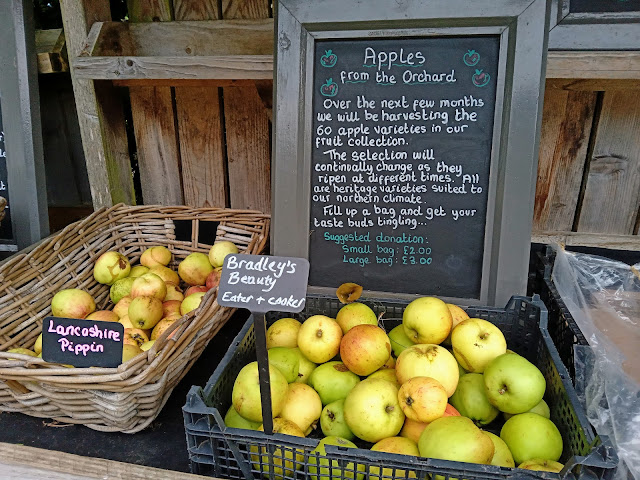 Apples
from the Orchard
Over the next few months
we will be harvesting the
60 apple varieties in our
fruit collection.
The selection will
continually change as they
ripen at different times. All
are heritage varieties suited to
our northern climate.
Fill up a bag and get your
taste buds tingling...
Suggested donation:
Small bag: £2.00
Large bag: £3.00
Bradley's
Beauty
Eater + cooker
Lancashire
Pippin